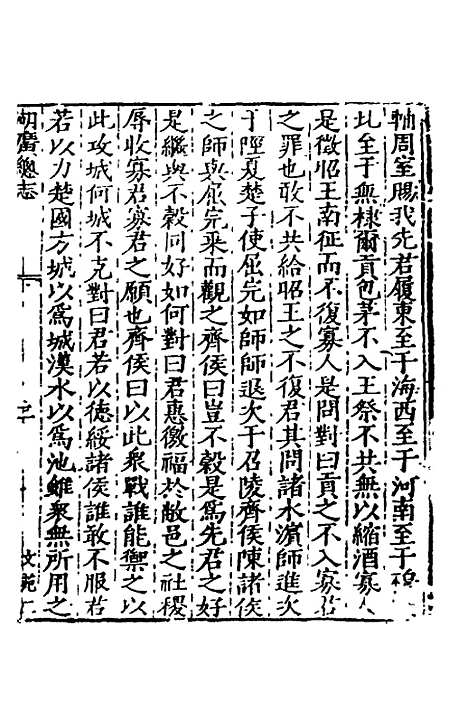 軸周室賜我先君履東至于海西至于河南至于穆
北至于無棣爾貢包茅不入王祭不共無以縮酒寡人
是徵昭王南征而不復寡人是問對曰貢之不入寡君
之罪也敢不共給昭王之不復君其問諸水濱師進次
于陘夏楚子使屈完如師師退次于召陵齊侯陳諸侯
之師與屈完乘而觀之齊侯曰豈不穀是爲先君之好
是繼與不穀同好如何對曰君惠徼福於敝邑之社稷
辱收寡君寡君之願也齊侯曰以此衆戰誰能禦之以
此攻城何城不克對曰君若以德綏諸侯誰敢不服君
若以力楚國方城以爲城漢水以爲池雖衆無所用之
湖廣總志